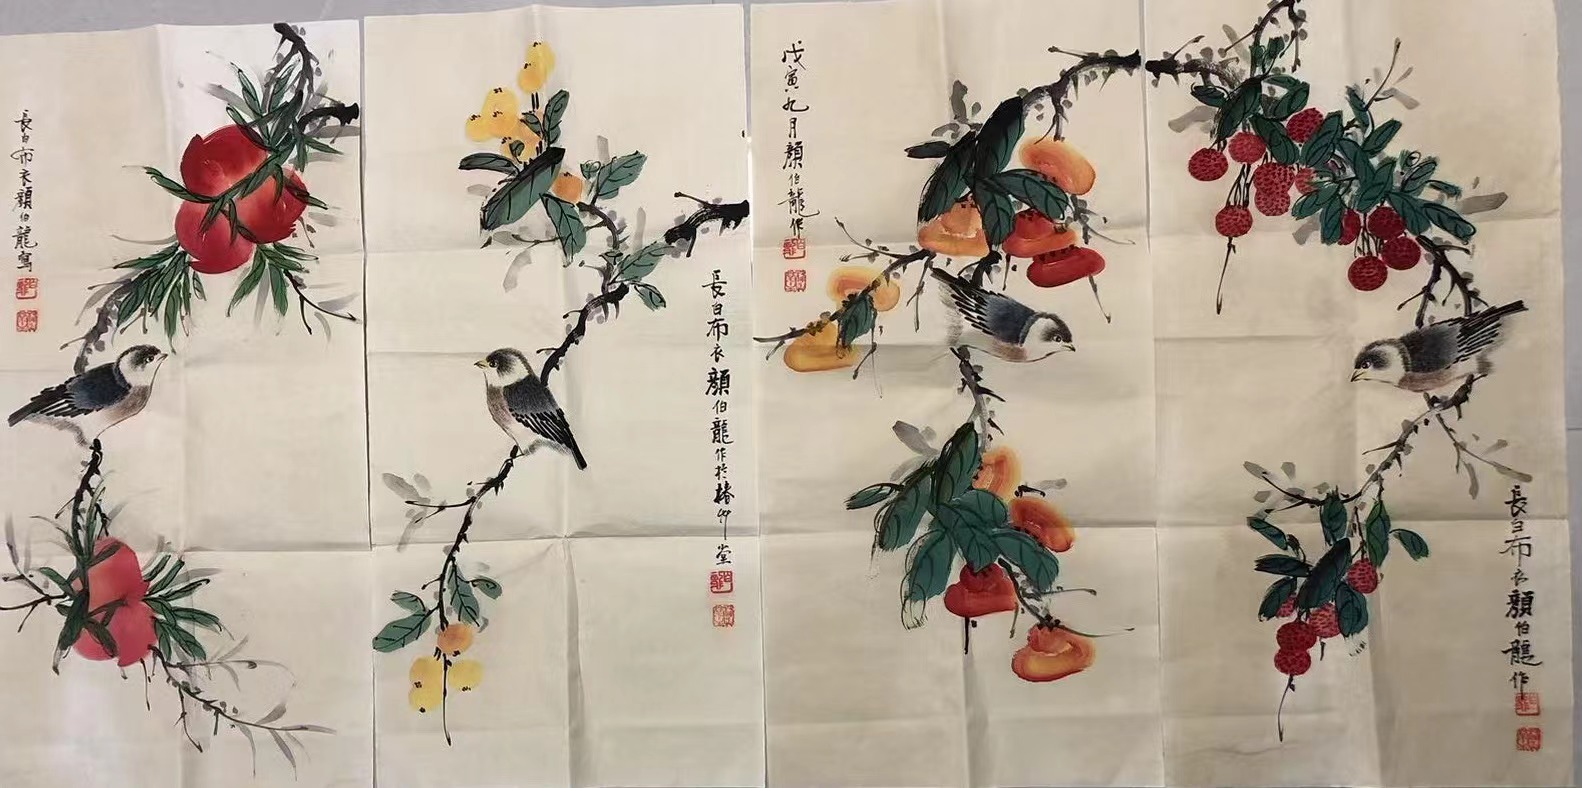 長白布衣顏伯龍寫
長白布衣顏伯龍作於椿草堂
戊寅九月顏伯龍作
長白布衣顏伯龍作